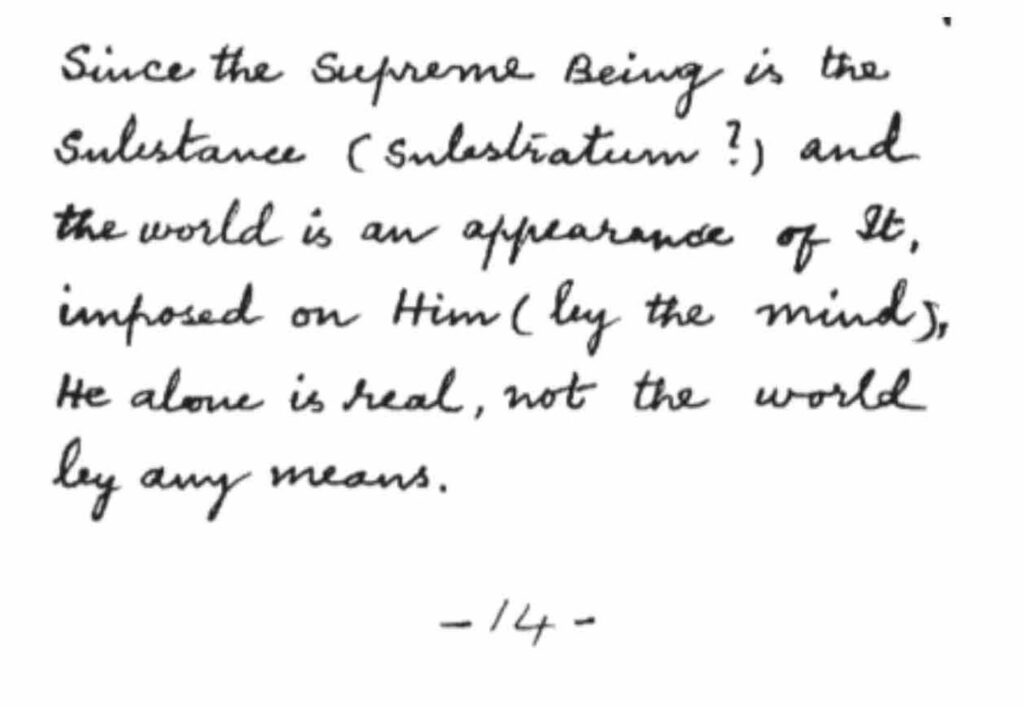 Since the Supreme Being is the
Substance (Substratum ?) and
the world is an appearance of It,
imposed on Him (by the mind),
He alone is real, not the world
by any means.
-14-